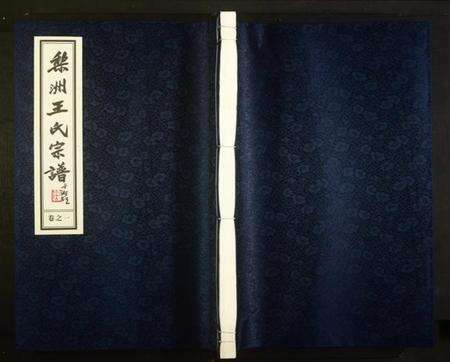 梨洲王氏宗譜
卷之一